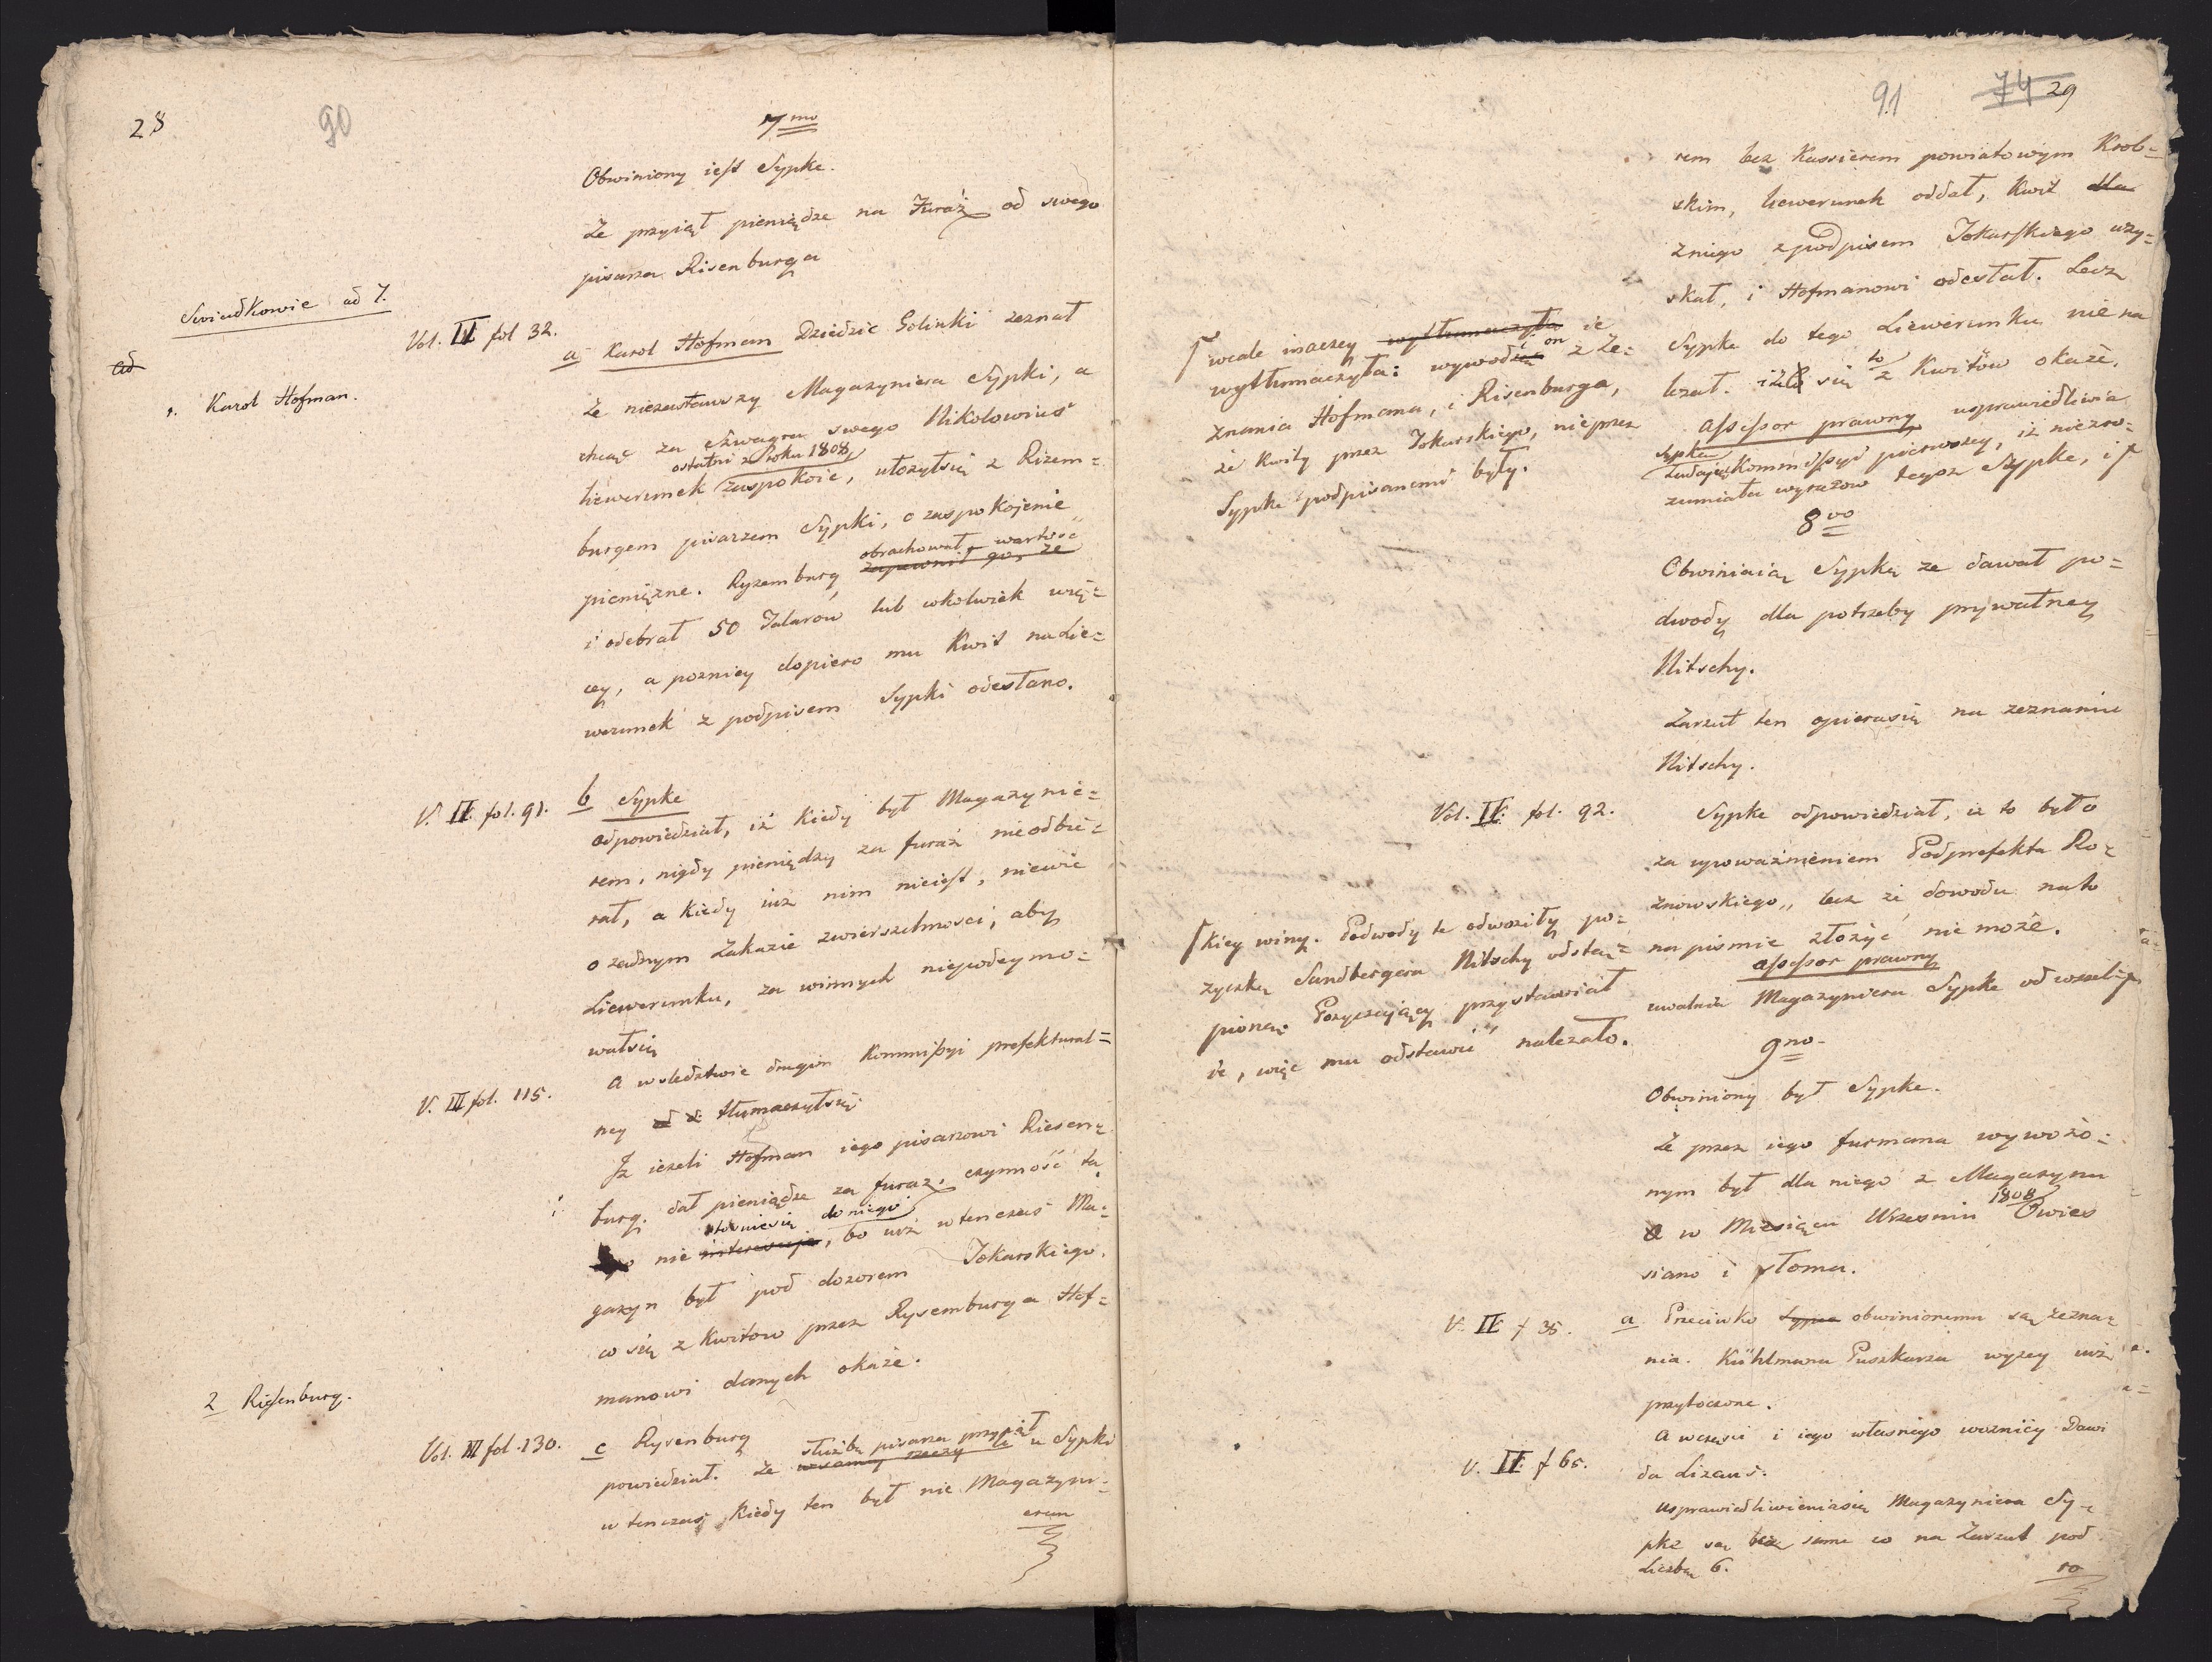 28
90
7mo
Obwiniony iest Sypke.
Że przyiął pieniądze na Furaż od swego
pisarza Risenburga
Swiadkowie ad 7.
ad
1. Karol Hofman.
Vol. IV fol 32.
a Karol Hofman Dziedzic Golinki zeznał
Że niezastawszy Magazyniera Sypki, a
chcąc za szwagra swego Nikolowius
ostatni z Roku 1808
liewerunek zaspokoic, ułożyłsię z Rizem=
burgem pisarzem Sypki, o zaspokojenie
pieniężne. Ryzemburg obrachował wartość
zapewnił go, że
i odebrał 50 Talarów lub cokolwiek wię=
cey, a pozniey dopiero mu Kwit na Lie=
werunek z podpisem Sypki odesłano.
V. IV. fol. 91.
b Sypke
odpowiedział, iż kiedy był Magazynie=
rem, nigdy pieniędzy za furaż nieodbie=
rał, a kiedy iuż nim nieiest, niewie
o żadnym Zakazie zwierzchnosci, aby
Liewerunku, za winnych niepodeymo=
wałsię
V. III fol. 115.
a w sledztwie drugim Kommißyi prefektural=
ney tłumaczyłsię
Jż ieżeli Hofman iego pisarzowi Riesen=
burg. dał pieniądze za furaz, czynność ta
stosuiesię do niego
nie interesuje, bo iuż wtenczas Ma=
gazyn był pod dozorem Tokarskiego.
co się z Kwitow przez Rysemburga Hof=
manowi danych okaże.
2 Riesenburg.
Vol. III fol. 130.
c Rysenburg
powiedział. że służbę pisarza przyiął
w samey rzeczy u Sypki
wtenczas, kiedy ten był nie Magazyni=
erem
91
74 29
rem lecz Kassierem powiatowym Krob=
skim, liewerunek oddał, Kwit dla
zniego z podpisem Tokarskiego uzy=
skał, i Hofmanowi odesłał. Lecz
Sypke do tego Liewerunku nie na
leżał. iż się to z Kwitów okaże.
assessor prawny usprawiedliwia
Sypkę
Kommissyi pierwszey, iż niezro=
zumiała wyrazow tegoż Sypke, i
wcale inaczey wytłumaczyła ie
wytłumaczyła: wywodzi on z Ze=
znania Hofmana, i Risenburga,
że Kwity przez Tokarskiego, nieprzez
Sypke podpisanemi były.
8vo
Obwiniaią Sypkę ze dawał po=
dwody dla potrzeby prywatney
Nitschy.
Zarzut ten opierasię na zeznaniu
Nitschy.
Vol. IV. fol. 92.
Sypke odpowiedział, iż to było
za upoważnieniem Podprefekta Ro=
znowskiego, lecz że dowodu na to
na pismie złożyć nie może.
assessor prawny
uwalnia Magazyniera Sypke od wszel=
kiey winy. Podwody te odwoziły po=
życzkę Sandbergera Nitschy odstą=
pioną: Pożyczaiący przystawiał
ie, więc mu odstawić należało.
9no
Obwiniony był Sypke.
Że przez iego furmana wywożo=
nym był dla niego z Magazynu
w Miesiącu Wrzesniu 1808 Owies
siano i słoma.
V. IV f 35.
a Przeciwko Sypce obwinionemu są zezna=
nia. Kühlmana Puszkarza wyzey iuż
przytoczone.
a wczęsci i iego własnego woznicy Dawi
da Lizaus.
V. IV. f 65.
usprawiedliwieniasię Magazyniera Sy=
pke są też same co na Zarzut pod
Liczbą 6.
10